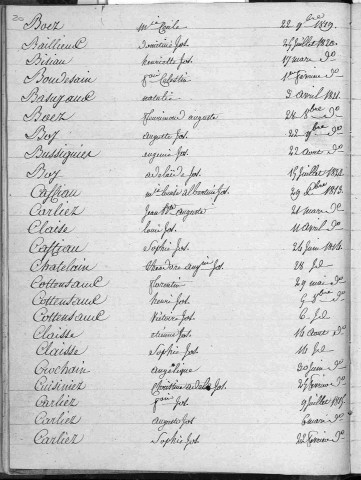 20
Boez Mie Émile 22 9bre 1819.
Bailliard Dominé Jos. 25 juillet 1820.
Bisiau henriette Jos. 17 mars do
Boudesain foin Célestin 1er février do
Basuyaud natalie 3 Avril 1821.
Boez fleurimond auguste 28 8bre do
Boy augustte Jos. 22 9bre do
Bussignier eugenie Jos. 22 aout do
Boy adelaïde Jos. 15 juillet 1822.
Castiau mie louise albertine Jos. 29 Xbre 1813.
Carliez Jean Bte auguste 21 mars do
Claise louis Jos. 11 avril do
Castiau Sophie Jos. 24 juin 1814.
Chatelain théodore augin Jos. 28 Jd
Cottensaud florentin 29 mai do
Cottensaud henri Jos. 6 8bre do
Cottensaud Victoire Jos. 6. Jd
Claisse etienne Jos. 14 Aout do
Claisse Sophie Jos. 14 Jd
Crochain Angélique 30 juin do
Cuisiniez Christine adèle Jos. 25 février do
Carliez foin Jos. 9 juillet 1815.
Carliez Auguste Jos. 6 mars do
Carliez Sophie Jos. 22 février do